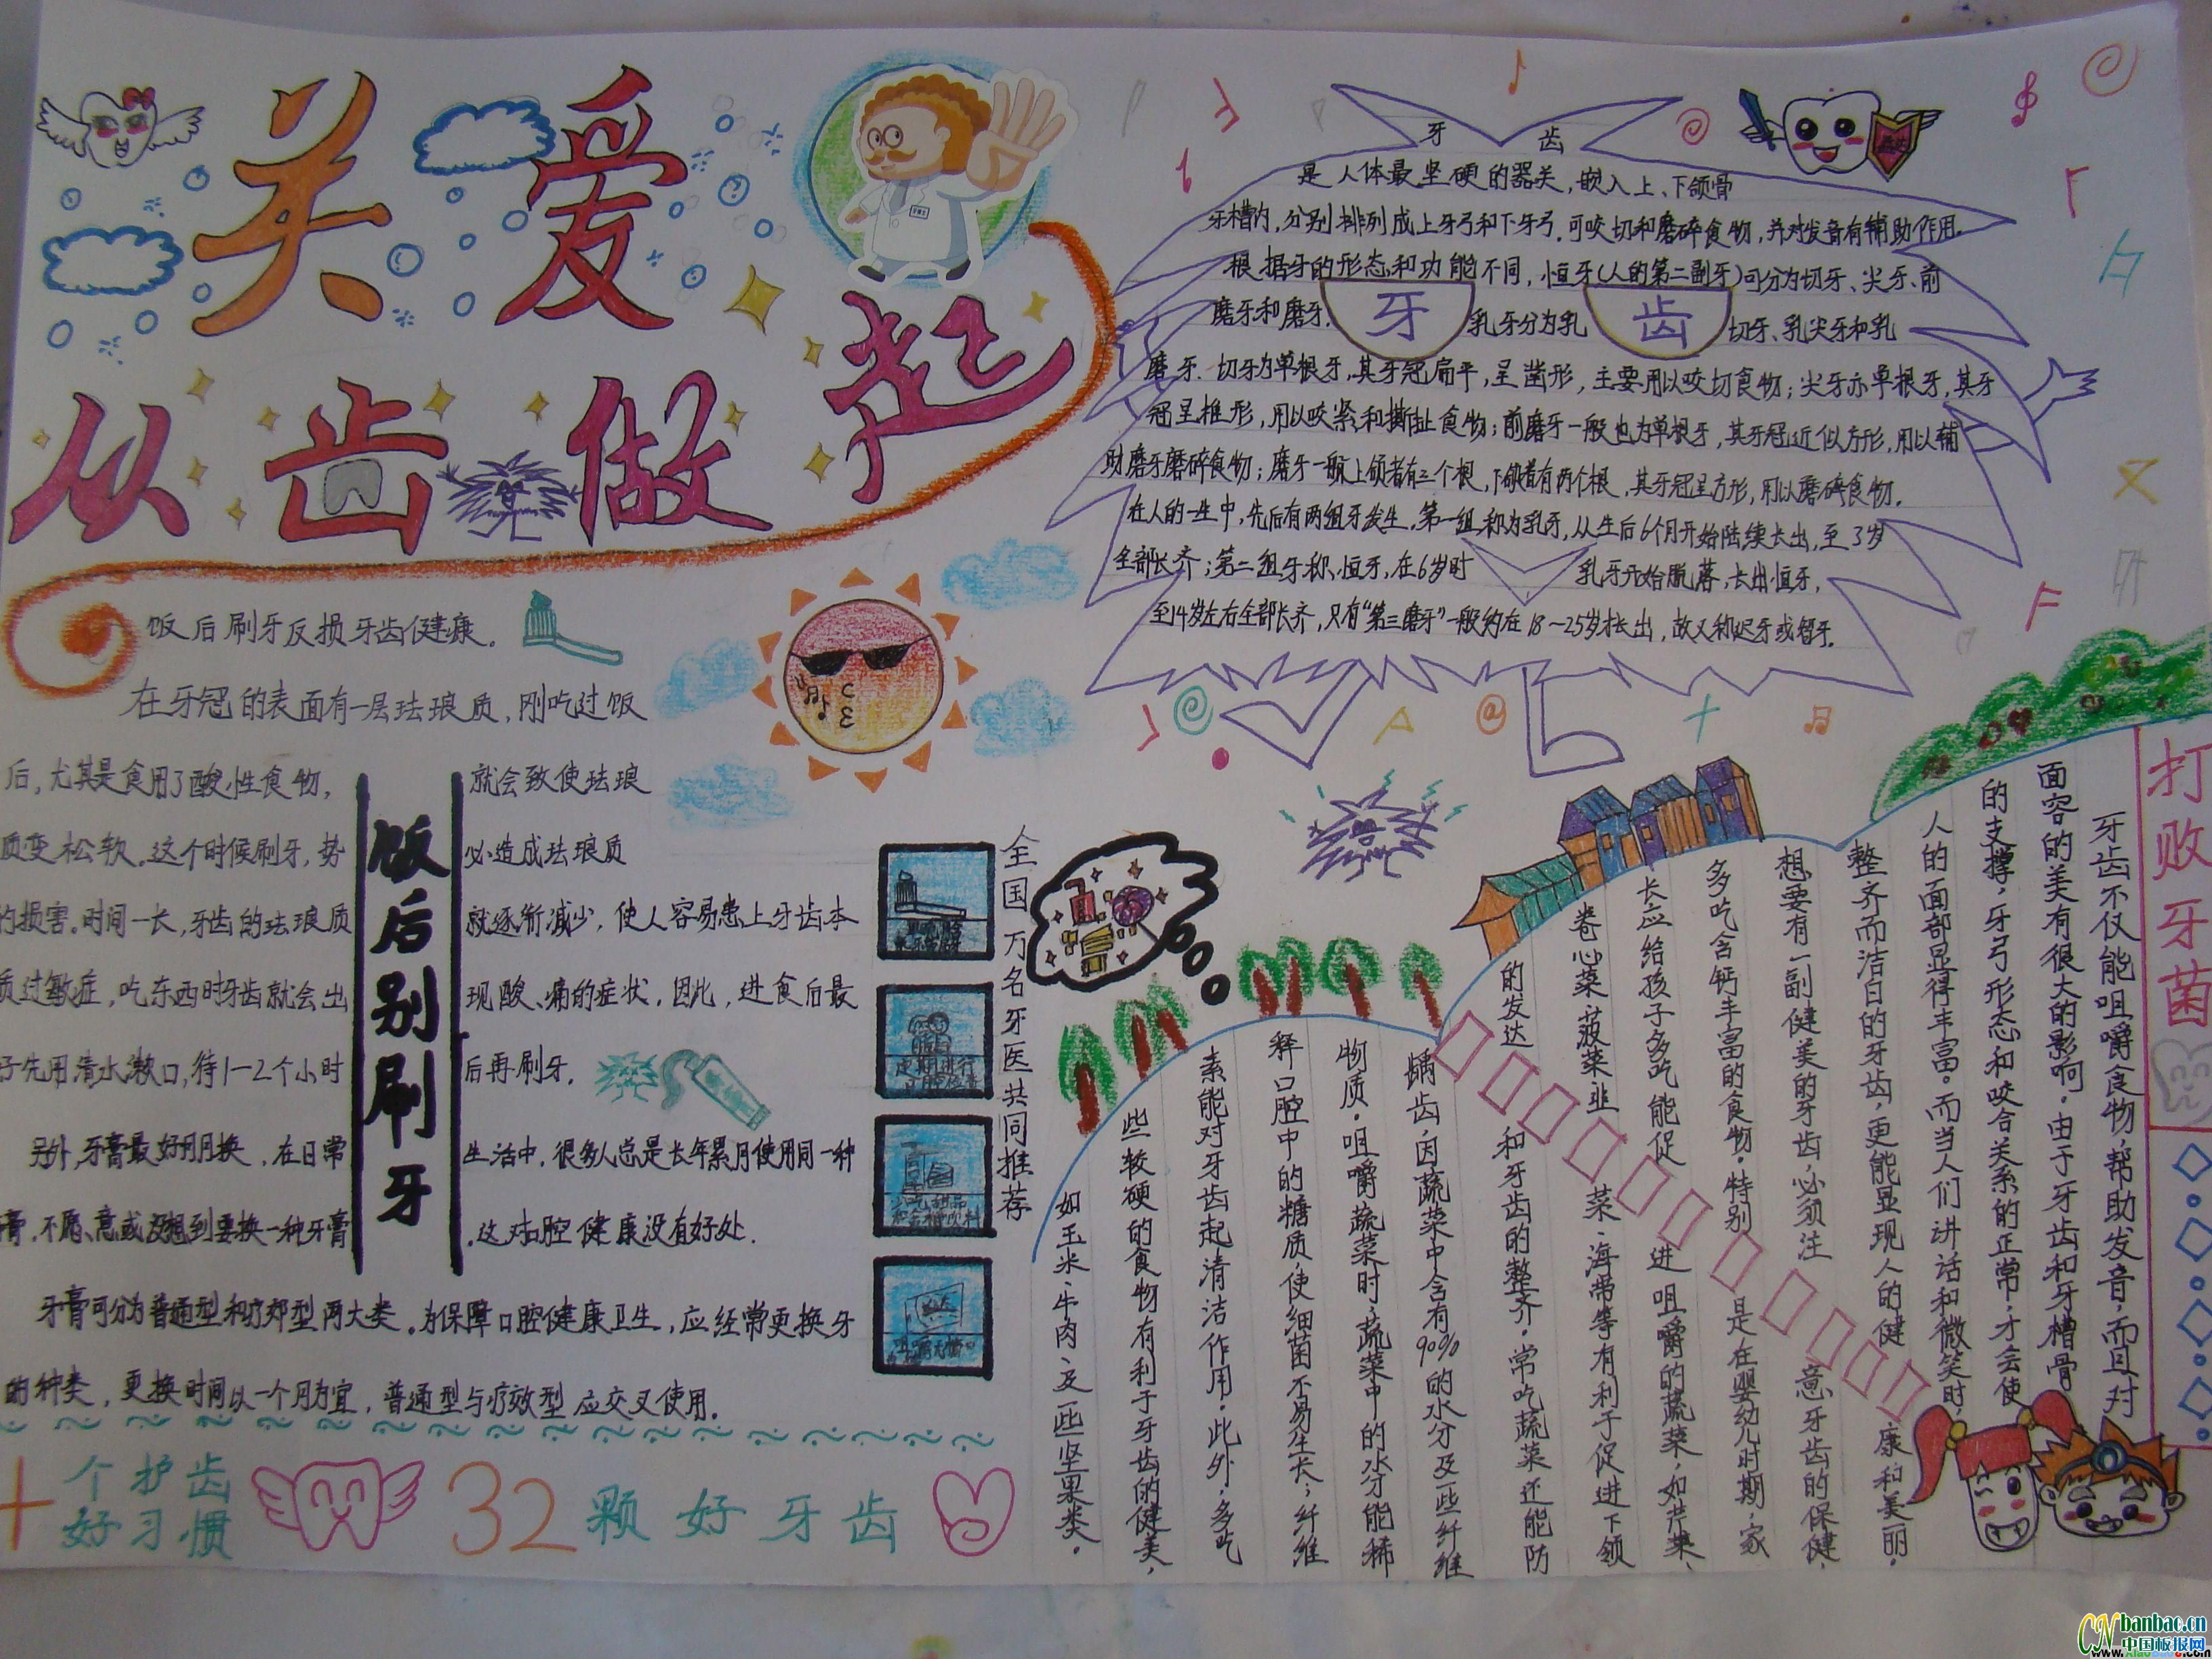 关爱
从齿做起
饭后刷牙反损牙齿健康。
在牙冠的表面有一层珐琅质,刚吃过饭
后,尤其是食用了酸性食物,就会致使珐琅
质变松软,这个时候刷牙,势必造成珐琅质
的损害。时间一长,牙齿的珐琅质就逐渐减少,使人容易患上牙齿本
质过敏症,吃东西时牙齿就会出现酸、痛的症状,因此,进食后最
好先用清水漱口,待1-2个小时后再刷牙。
另外,牙膏最好月月换,在日常生活中,很多人总是长年累月使用同一种
膏,不愿意或没想到要换一种牙膏,这对口腔健康没有好处.
牙膏可分为普通型和疗效型两大类。为保障口腔健康卫生,应经常更换牙
的种类,更换时间以一个月为宜,普通型与疗效型应交叉使用.
饭后别刷牙
十个护齿
好习惯
32颗好牙齿
全国万名牙医共同推荐
早晚
定期进行
口腔检查
少吃甜品
牙齿
是人体最坚硬的器关,嵌入上、下颌骨
牙槽内,分别排列成上牙弓和下牙弓.可咬切和磨碎食物,并对发音有辅助作用.
根据牙的形态和功能不同,恒牙(人的第二副牙)可分为切牙、尖牙、前
磨牙和磨牙.乳牙分为乳切牙、乳尖牙和乳
牙齿
磨牙.切牙为单根牙,其牙冠扁平,呈凿形,主要用以咬切食物;尖牙亦单根牙,其牙
冠呈椎形,用以咬紧和撕扯食物;前磨牙一般也为单根牙,其牙冠近似方形,用以辅
助磨牙磨碎食物;磨牙一般上颌者有三个根,下颌者有两个根,其牙冠呈方形,用以磨碎食物.
在人的一生中,先后有两组牙发生.第一组称为乳牙,从生后6个月开始陆续长出,至3岁
全部长齐;第二组牙称恒牙,在6岁时乳牙开始脱落,长出恒牙,
至14岁左右全部长齐,只有“第三磨牙”一般约在18~25岁才长出,故又称迟牙或智牙.
打败牙菌
牙齿不仅能咀嚼食物,帮助发音,而且对
面容的美有很大的影响。由于牙齿和牙槽骨
的支撑,牙弓形态和咬合关系的正常,才会使
人的面部显得丰富。而当人们讲话和微笑时,
整齐而洁白的牙齿,更能显现人的健康和美丽。
想要有一副健美的牙齿,必须注意牙齿的保健,
多吃含钙丰富的食物。特别是在婴幼儿时期,家
长应给孩子多吃能促进咀嚼的蔬菜,如芹菜、
卷心菜、菠菜、韭菜、海带等有利于促进下颌
的发达和牙齿的整齐。常吃蔬菜还能防
龋齿,因蔬菜中含有90%的水分及一些纤维
物质。咀嚼蔬菜时,蔬菜中的水分能稀
释口腔中的糖质,使细菌不易生长;纤维
素能对牙齿起清洁作用。此外,多吃
些较硬的食物有利于牙齿的健美,
如玉米、牛肉及一些坚果类。
CN banbao.cn
中国板报网